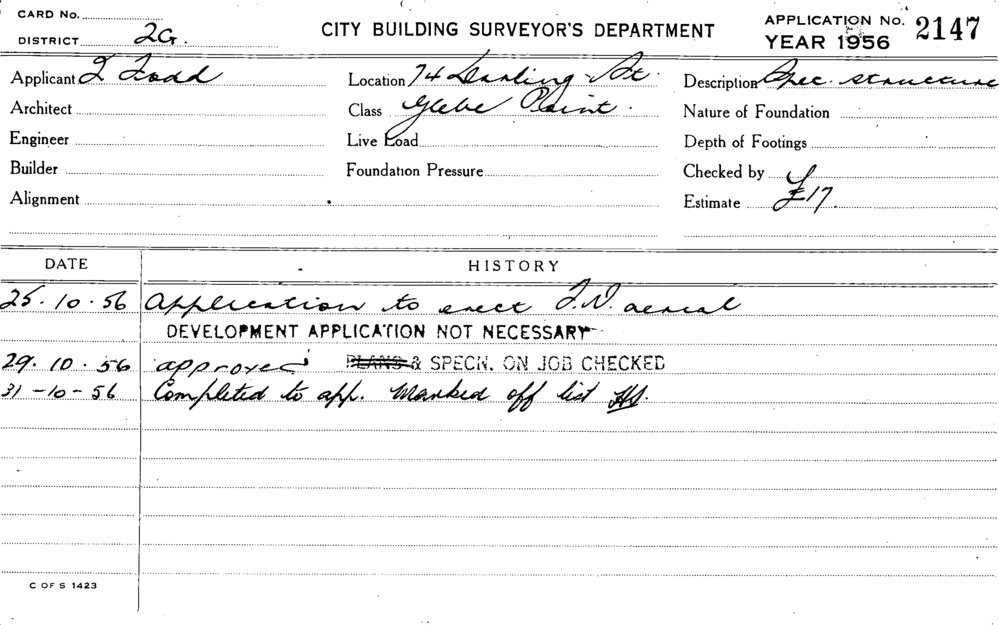 CARD No.
DISTRICT 2G.
CITY BUILDING SURVEYOR'S DEPARTMENT
APPLICATION No. 2147
YEAR 1956
Applicant Todd
Location 74 Darling St.
Description Spec. structure
Architect
Class Glebe Point.
Nature of Foundation
Engineer
Live Load
Depth of Footings
Builder
Foundation Pressure
Checked by
Alignment
Estimate £17.
DATE HISTORY
25.10.56 Application to erect T.V. aerial
DEVELOPMENT APPLICATION NOT NECESSARY
29.10.56 approved PLANS & SPECN. ON JOB CHECKED
31-10-56 Completed to app. Marked off list
C OF S 1423